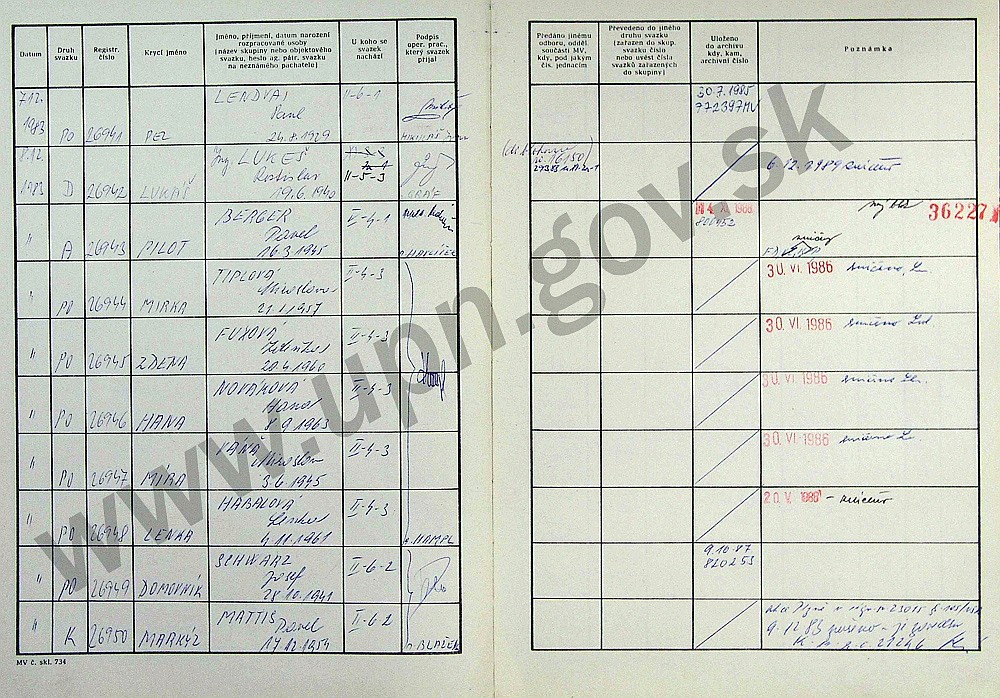 Datum
Druh svazku
Registr. číslo
Krycí jméno
Jméno, příjmení, datum narození
rozpracované osoby
(název skupiny nebo objektového
svazku, heslo ag. pátr. svazku
na neznámého pachatele)
U koho se
svazek
nachází
Podpis
oper. prac.,
který svazek
přijal
Předáno jinému
odboru, odděl.
součásti MV,
kdy, pod jakým
čís. jednacím
Převedeno do jiného
druhu svazku
(zařazen do skup.
svazku čísla
nebo uvést čísla
svazků zařazených
do skupiny)
Uloženo
do archivu
kdy, kam,
archivní číslo
Poznámka
7.12.
1983 PO 26941 PEZ
LENDVAI
Pavel
24.8.1929
II-6-1
30.7.1985
772397MV
8.12.
1983 D 26942 LUKÁŠ
Ing. LUKEŠ
Rostislav
19.6.1940
II-5-3
GRÁF
6.12.1989 zničeno
" A 26943 PILOT
BERGER
Pavel
16.3.1945
II-4-1
HAVLÍČEK
XI. 1986
806452
36227
" PO 26944 MIRKA
TIPLOVÁ
Miroslava
21.1.1957
II-4-3
30. VI. 1986 zničeno
" PO 26945 ZDENA
FUXOVÁ
Zdenka
20.4.1960
II-4-3
30. VI. 1986 zničeno
" PO 26946 HANA
NOVÁKOVÁ
Hana
8.9.1963
II-4-3
30. VI. 1986 zničeno
" PO 26947 MÍRA
VÁŇA
Miroslav
3.6.1945
II-4-3
30. VI. 1986 zničeno
" PO 26948 LENKA
HABALOVÁ
Lenka
4.11.1961
II-4-3
HAMPL
20. V. - zničeno
" PO 26949 DOMOVNÍK
SCHWARZ
Josef
28.10.1941
II-6-2
9.10.87
820253
" K 26950 MARKÝZ
MATTIS
Pavel
17.12.1954
II-6-2
BLAŽEK
9.12.83
MV č. skl. 734
www.upn.gov.sk